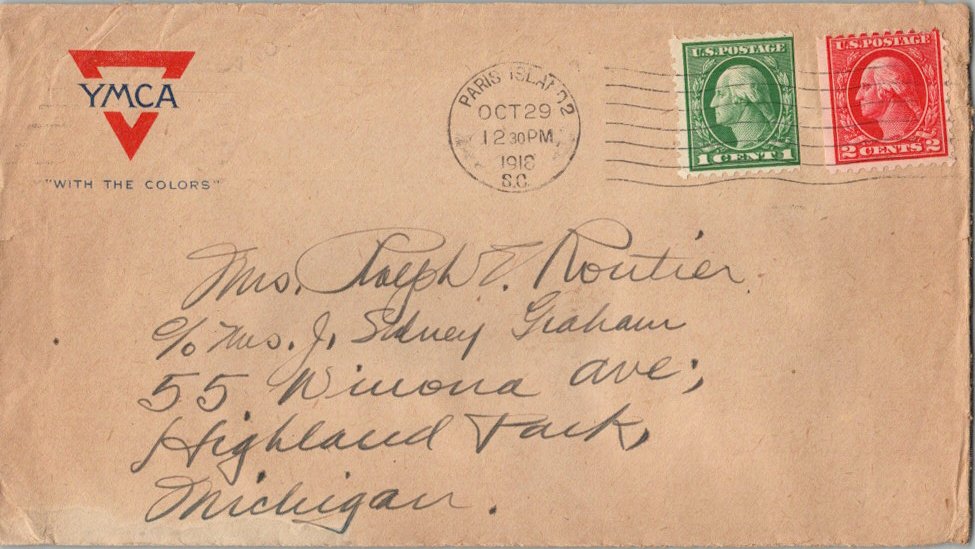 YMCA
"WITH THE COLORS"
PARIS ISLAND
OCT 29
12 30 PM
1918
S.C.
U.S. POSTAGE
1 CENT 1
U.S. POSTAGE
2 CENTS 2
Mrs. Ralph E. Routier
c/o Mrs. J. Sidney Graham
55 Winona Ave.,
Highland Park,
Michigan.